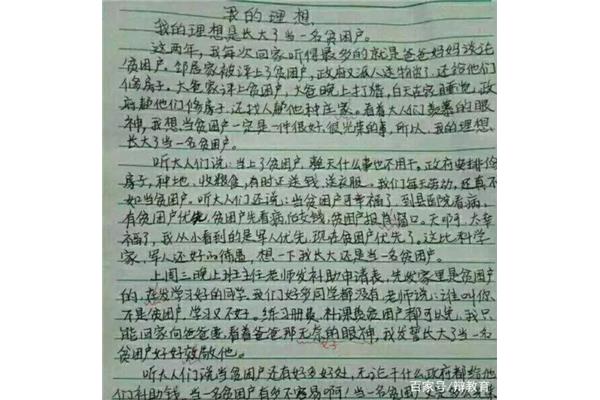 我的理想
我的理想是长大了当一名贫困户。
这两年,我每次回家听得最多的就是爸爸妈妈谈论
贫困户,邻居家被评上了贫困户,政府又派人送物资,还给他们
修房子。大爸家评上贫困户,大爸晚上打猎,白天在家睡觉,政
府帮他们修房子,还找人帮他种庄家。看着大人们羡慕的眼
神,我想,当贫困户一定是一件很好,很光荣的事,所以,我的理想,
长大了当一名贫困户。
听大人们说:当上了贫困户,整天什么事也不用干。政府安排修
房子,种地、收粮食,有时还送钱、送衣服。我们每天劳动,还真不
如当贫困户。听大人们还说:当贫困户可幸福了,到县医院看病,
有贫困户优先,贫困户先看病后交钱,贫困户报销窗口。天哪,太幸
福了,我从小看到的是军人优先,现在贫困户优先了。这比科学
家、军人还好的待遇,想一下我长大还是当一名贫困户。
上周三,晚上班主任老师发补助申请表,先发家里是贫困户
的,在发学习好的同学,我们好多同学都没有,老师说:谁叫你
不是贫困户,学习又不好。练习册费,补课费贫困户都可以免,我只
能回家向爸爸要,看着爸爸那无奈的眼神,我发誓长大了当一名
贫困户好好孝敬他。
听大人们说当贫困户还有好多好处,无论干什么政府都给他
们补助钱,当一名贫困户有多不容易啊!当一名贫困户
百家号/辩教育